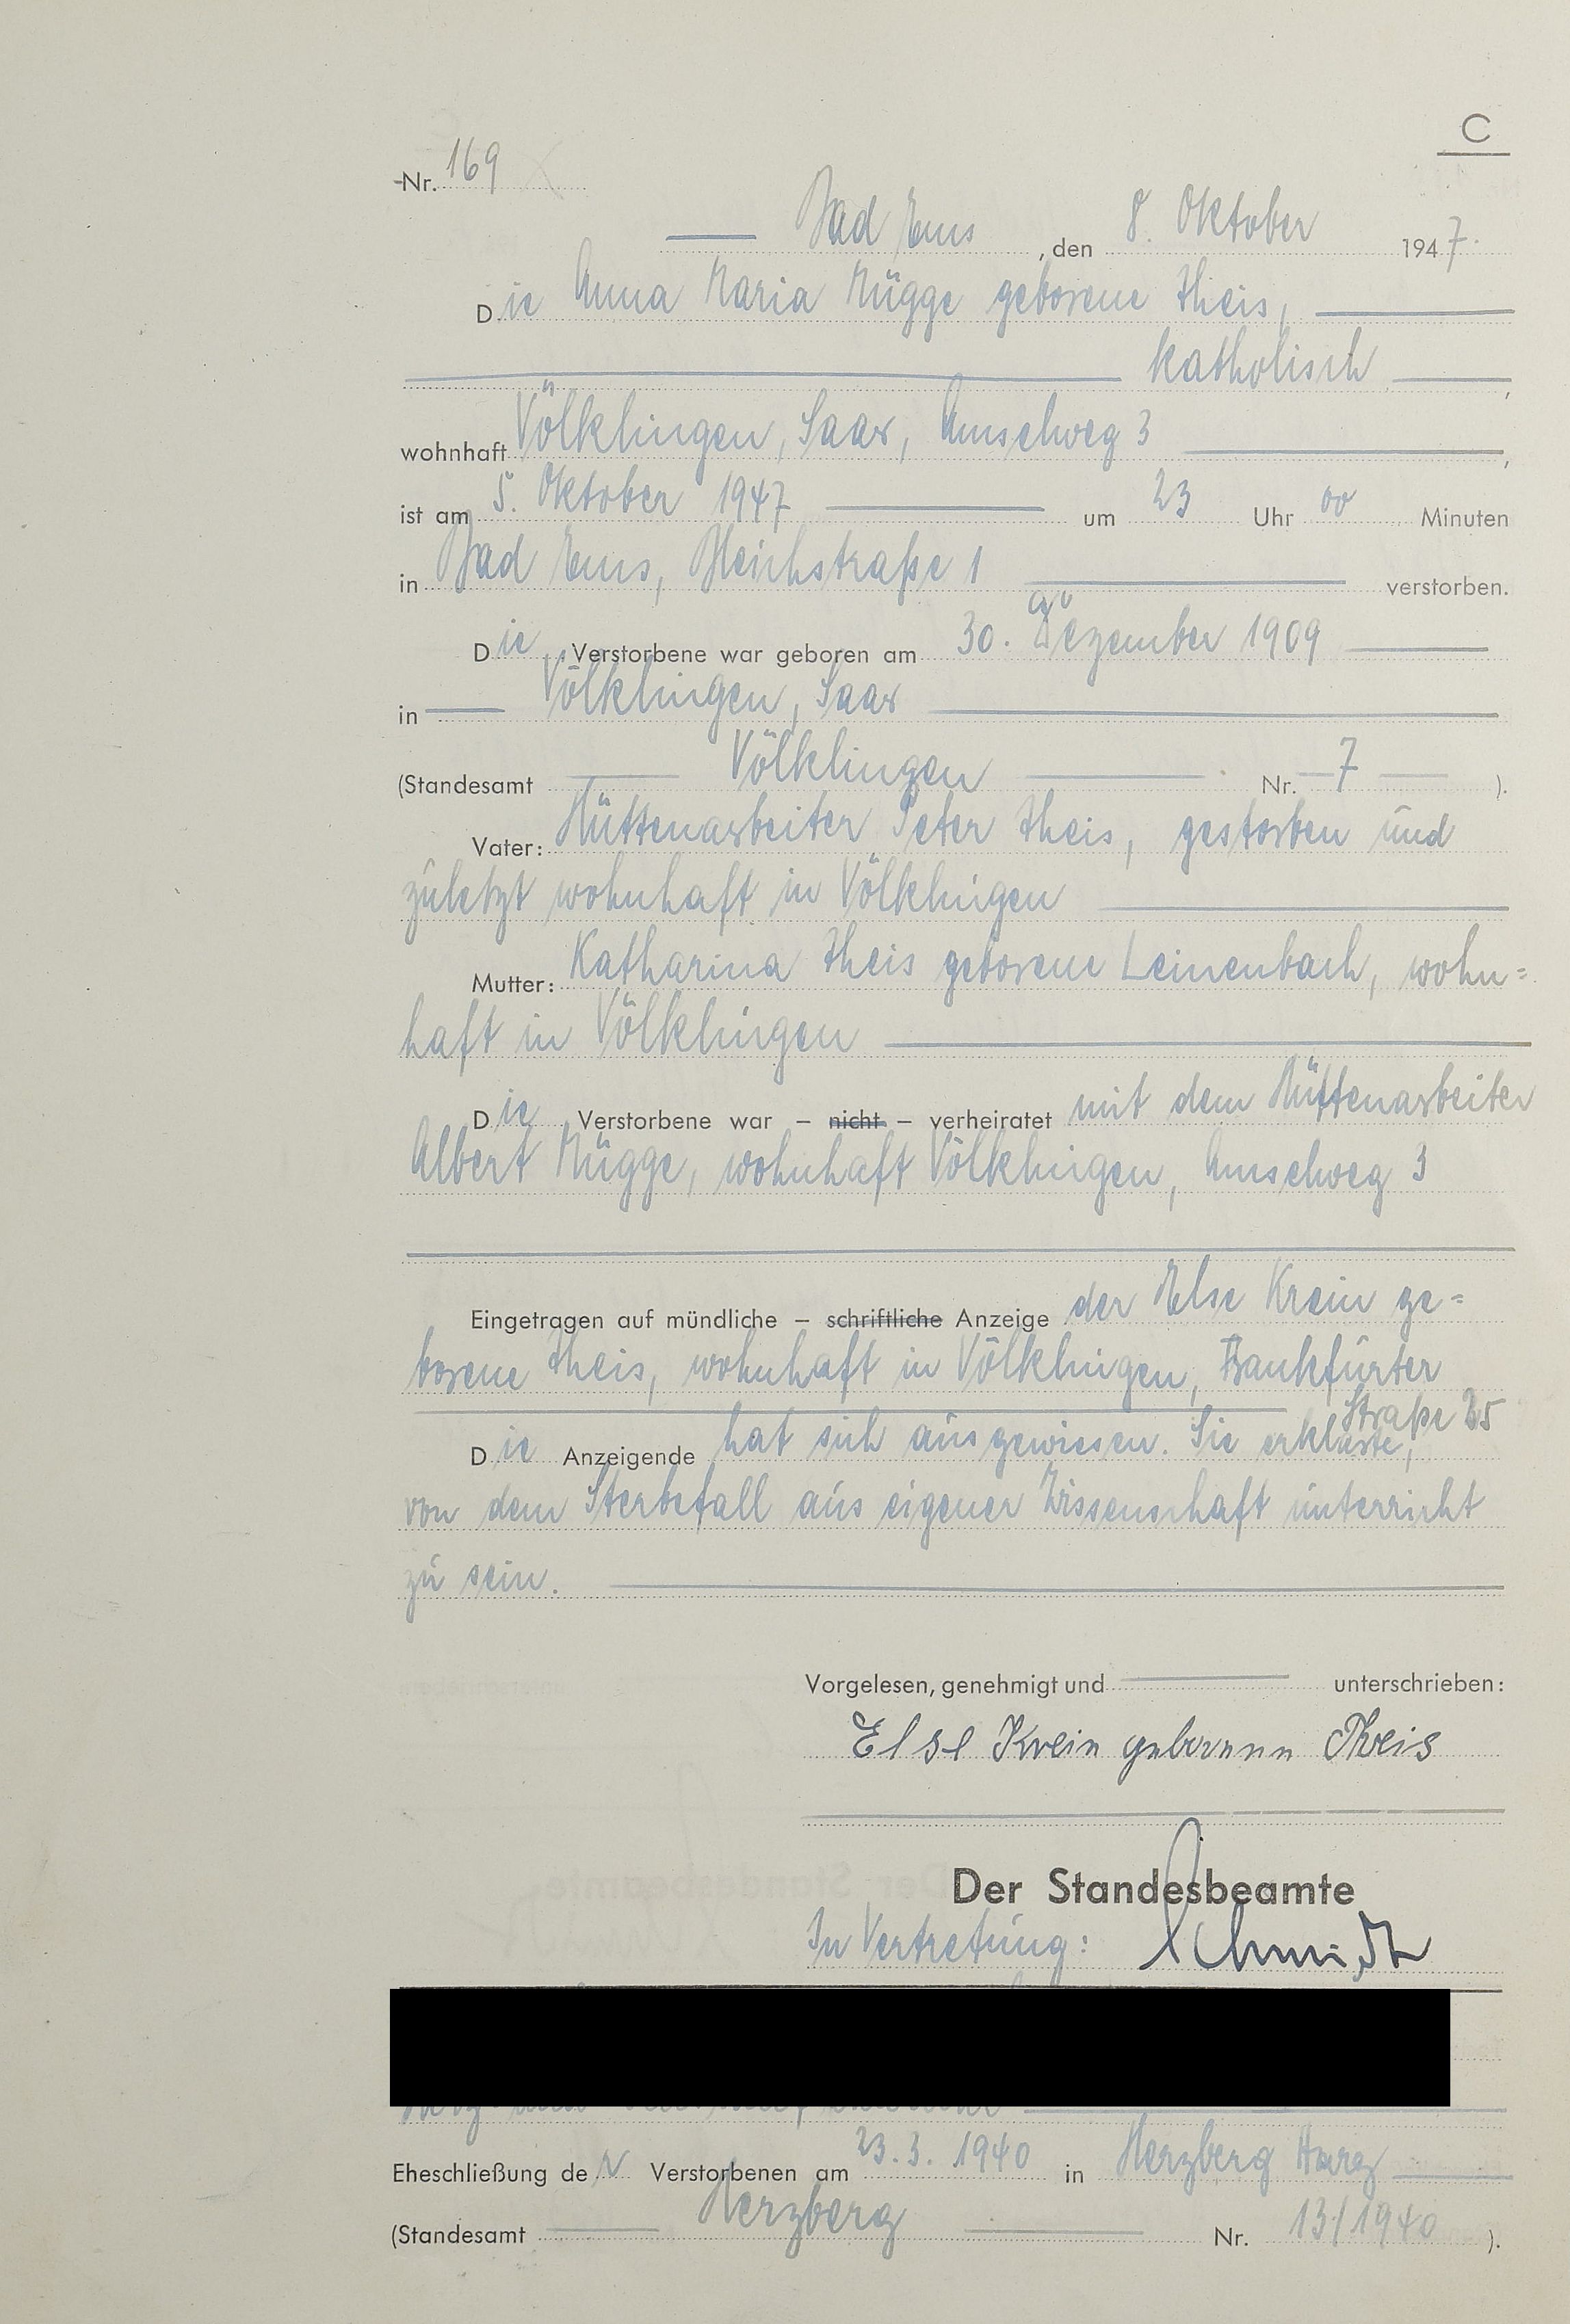 C
Nr. 169
Bad Ems, den 8. Oktober 1947.
Die Anna Maria Mügge geborene Theis,
katholisch,
wohnhaft Völklingen, Saar, Amselweg 3,
ist am 5. Oktober 1947 um 23 Uhr 00 Minuten
in Bad Ems, Bleichstraße 1 verstorben.
Die Verstorbene war geboren am 30. Dezember 1909
in Völklingen, Saar
(Standesamt Völklingen Nr. 7).
Vater: Hüttenarbeiter Peter Theis, gestorben und
zuletzt wohnhaft in Völklingen
Mutter: Katharina Theis geborene Leinenbach, wohn=
haft in Völklingen
Die Verstorbene war – nicht – verheiratet mit dem Hüttenarbeiter
Albert Mügge, wohnhaft Völklingen, Amselweg 3
Eingetragen auf mündliche – schriftliche Anzeige der Else Krein ge=
borene Theis, wohnhaft in Völklingen, Frankfurter
Straße 25
Die Anzeigende hat sich ausgewiesen. Sie erklärte,
von dem Sterbefall aus eigener Wissenschaft unterricht
zu sein.
Vorgelesen, genehmigt und unterschrieben:
Else Krein geborene Theis
Der Standesbeamte
In Vertretung: Schmidt
Eheschließung der Verstorbenen am 23.3.1940 in Herzberg Harz
(Standesamt Herzberg Nr. 13/1940).